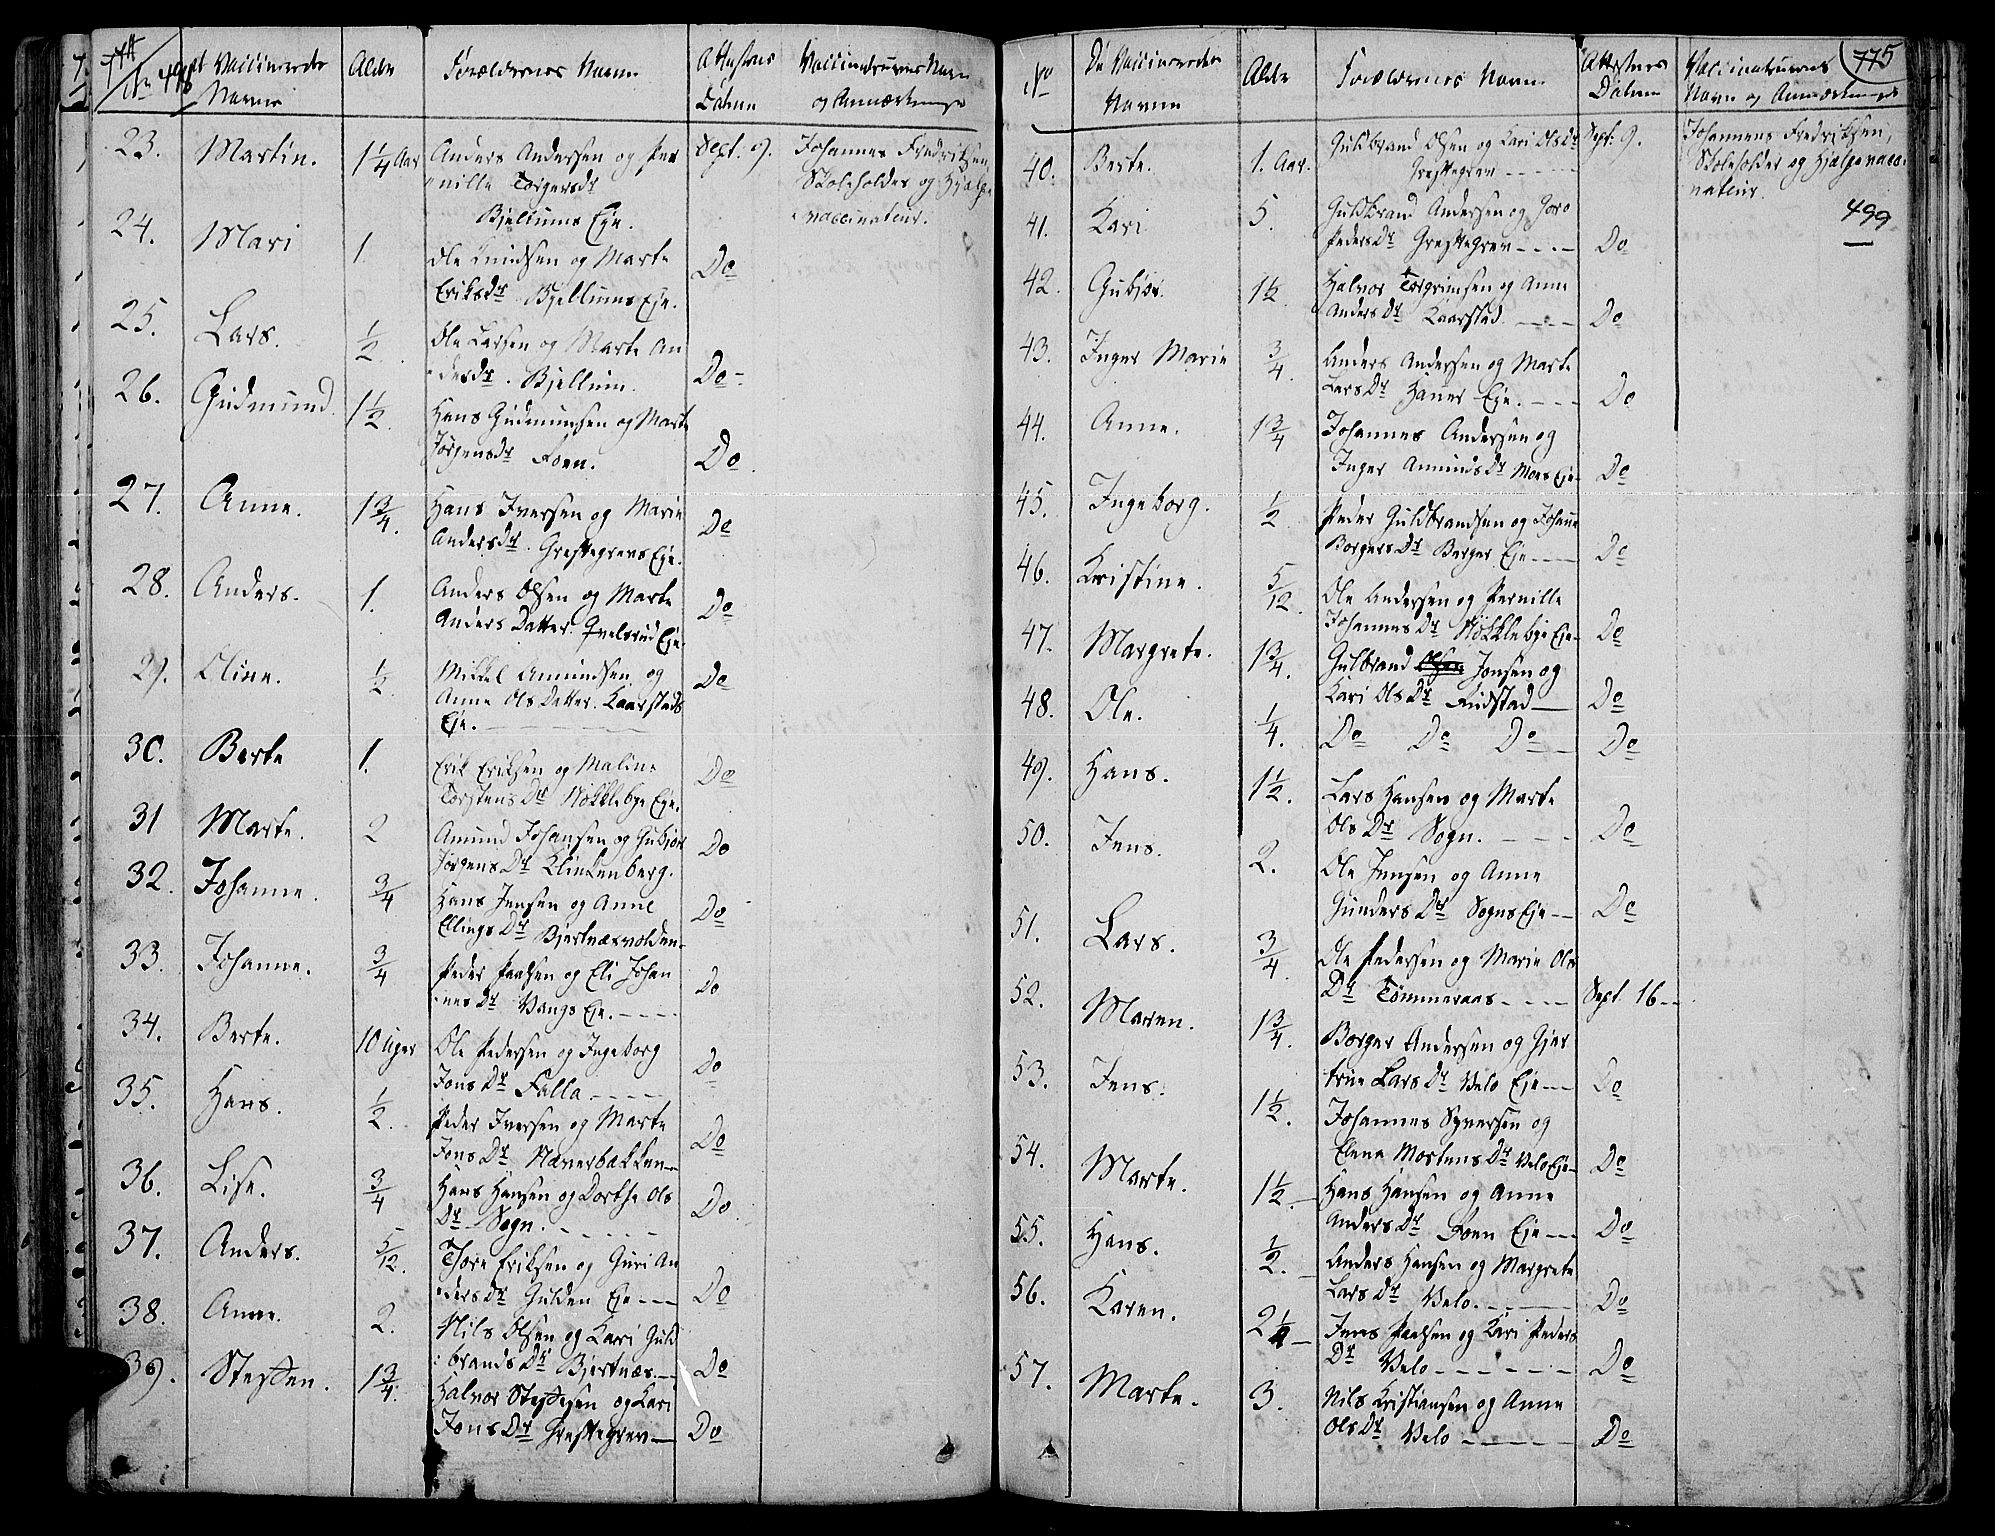 774
No 498
De Vaccineredes
Navne
Alder
Forældrenes Navne
Attestens
Datum
Vaccinateurens Navn
og Anmærkninger
23. Martin. 1 1/4 Aar Anders Andersen og Per
nille Torgersdr
Bjellums Eje.
Sept. 9. Johannes Fredriksen,
Skoleholder og Hjælpe
vaccinateur.
24. Mari 1. Ole Knudsen og Marte
Eriksdr Bjellums Eje. Do
25. Lars. 1/2 Ole Larsen og Marte An
dersdr. Bjellum. Do
26. Gudmund. 1 1/2 Hans Gudmunsen og Marte
Jørgensdr Foen. Do
27. Anne. 1 3/4. Hans Iversen og Marie
Andersdr. Greftegrevs Eje. Do
28. Anders. 1. Anders Olsen og Marte
Anders Datter. Qvelsrud Eje. Do
29. Oline. 1/2 Mikkel Amundsen og
Anne Ols Datter. Kaarstads
Eje. Do
30. Berte 1. Erik Eriksen og Maline
Torstens Dr Nøkkleby Eje. Do
31 Marte. 2 Amund Johansen og Gubjør
Jørgens Dr Klinkenberg. Do
32. Johanne. 3/4 Hans Jensen og Anne
Ellings Dr Bjertnæsvolden Do
33. Johanne. 3/4 Peder Paulsen og Eli Johan
nes Dr Vangs Eje. Do
34. Berte. 10 Uger Ole Pedersen og Ingeborg
Jons Dr Falla Do
35. Hans. 1/2. Peder Iversen og Marte
Jons Dr Næverbakken Do
36. Lise. 3/4 Hans Hansen og Dorthe Ols
Dr Sogn. Do
37. Anders. 5/12. Thore Eriksen og Guri An
ders Dr Gulden Eje Do
38. Anne. 2. Nils Olsen og Kari Guld
brands Dr Bjertnæs. Do
39. Steffen. 1 3/4. Halvor Steffesen og Kari
Jons Dr Greftegrev Do
775
No
De Vaccineredes
Navne
Alder
Forældrenes Navne
Attestens
Datum
Vaccinateurens
Navn og Anmærkninger
40. Berte. 1. Aar. Guldbrand Olsen og Kari Olsdr
Greftegrev
Sept. 9. Johannes Fredriksen,
Skoleholder og Hjælpevacci
nateur.
499
41. Kari 5. Guldbrand Andersen og Goro
Pedersdr Greftegrev Do
42. Gubjør. 1 1/2. Halvor Torgrimsen og Anne
Anders Dr Kaarstad. Do
43. Inger Marie 3/4. Anders Andersen og Marte
Lars Dr Haner Eje. Do
44. Anne. 1 3/4 Johannes Andersen og
Inger Amunds Dr Moes Eje Do
45. Ingeborg. 1/2 Peder Guldbrandsen og Johane
Borgers Dr Berger Eje Do
46. Kristine. 5/12. Ole Andersen og Pernille
Johannes Dr Nøkkleby Eje Do
47. Margrete. 1 3/4. Gulbrand Olsen Jonsen og
Kari Ols Dr Findstad Do
48. Ole. 1/4. Do Do Do Do
49. Hans. 1 1/2. Lars Hansen og Marte
Ols Dr Sogn. Do
50. Jens. 2. Ole Jensen og Anne
Gunders Dr Sogns Eje Do
51. Lars. 3/4 Ole Pedersen og Marie Ols
Dr Tømmeraas Sept. 16
52. Maren. 1 3/4. Borger Andersen og Gjer
true Lars Dr Velo Eje Do
53. Jens. 1 1/2. Johannes Syversen og
Elena Mostens Dr Velo Eje Do
54. Marte. 1 1/2. Hans Hansen og Anne
Anders Dr Foen Eje Do
55. Hans. 1/2. Anders Hansen og Margrete
Lars Dr Velo. Do
56. Karen. 2 1/2 Jens Paulsen og Kari Peders
Dr Velo Do
57. Marte. 3. Nils Kristiansen og Anne
Ols Dr Velo Do